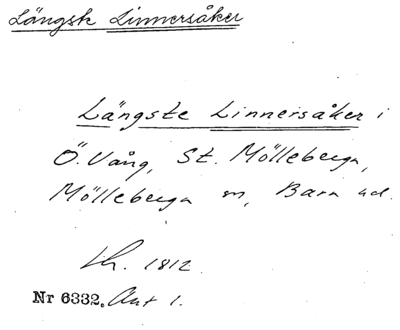 Längsk Linnersåker
Längste Linnersåker i
Ö. Vång, St. Mölleberga,
Mölleberga sn, Bara hd.
Lh. 1812.
Nr 6332. Akt 1.